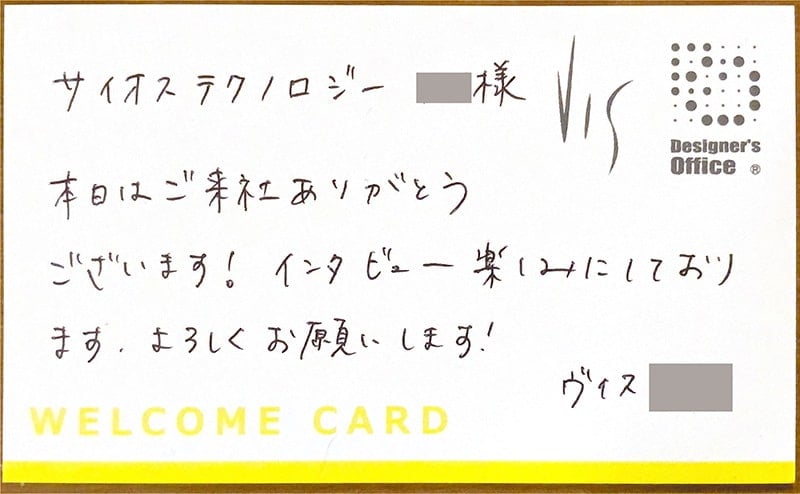 サイオステクノロジー 様
VIS
Designer's
Office ®
本日はご来社ありがとう
ございます！ インタビュー楽しみにしており
ます．よろしくお願いします！
ヴィス
WELCOME CARD